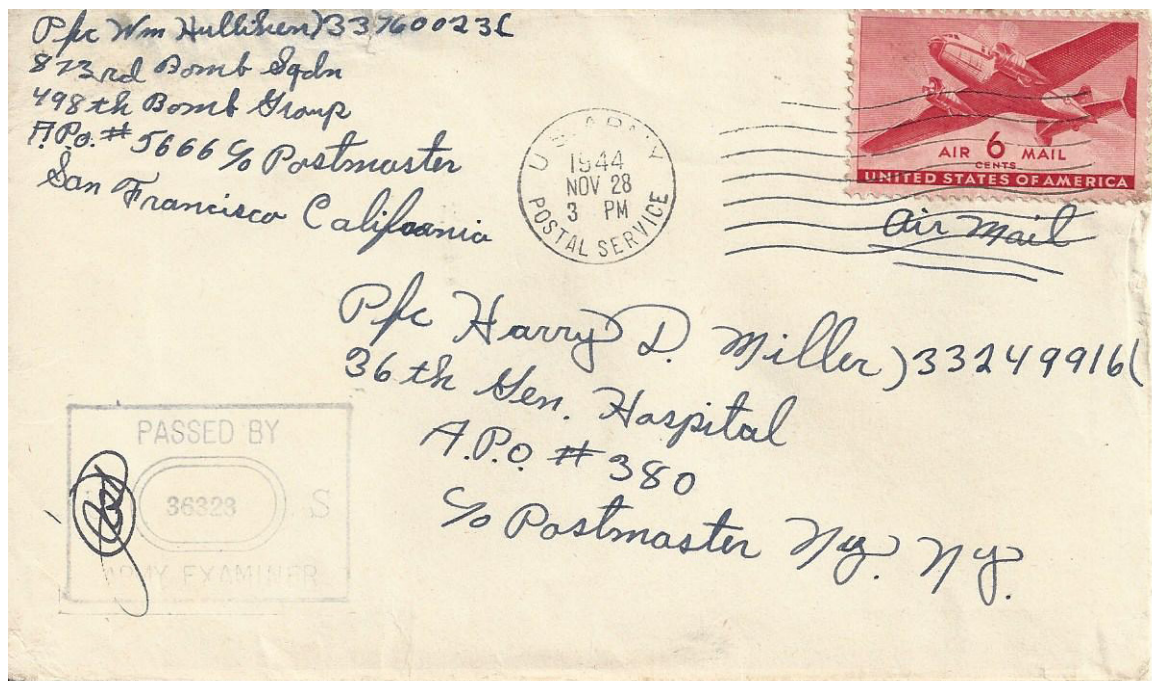 Pfc Wm Hulliken)33760023(
873rd Bomb Sqdn
498th Bomb Group
A.P.O. # 5666 c/o Postmaster
San Francisco California
U.S. ARMY
1944
NOV 28
3 PM
POSTAL SERVICE
AIR 6 MAIL
CENTS
UNITED STATES OF AMERICA
Air Mail
Pfc Harry D. Miller)33249916(
36th Gen. Hospital
A.P.O. # 380
c/o Postmaster Ny. Ny.
PASSED BY
36328 S
ARMY EXAMINER